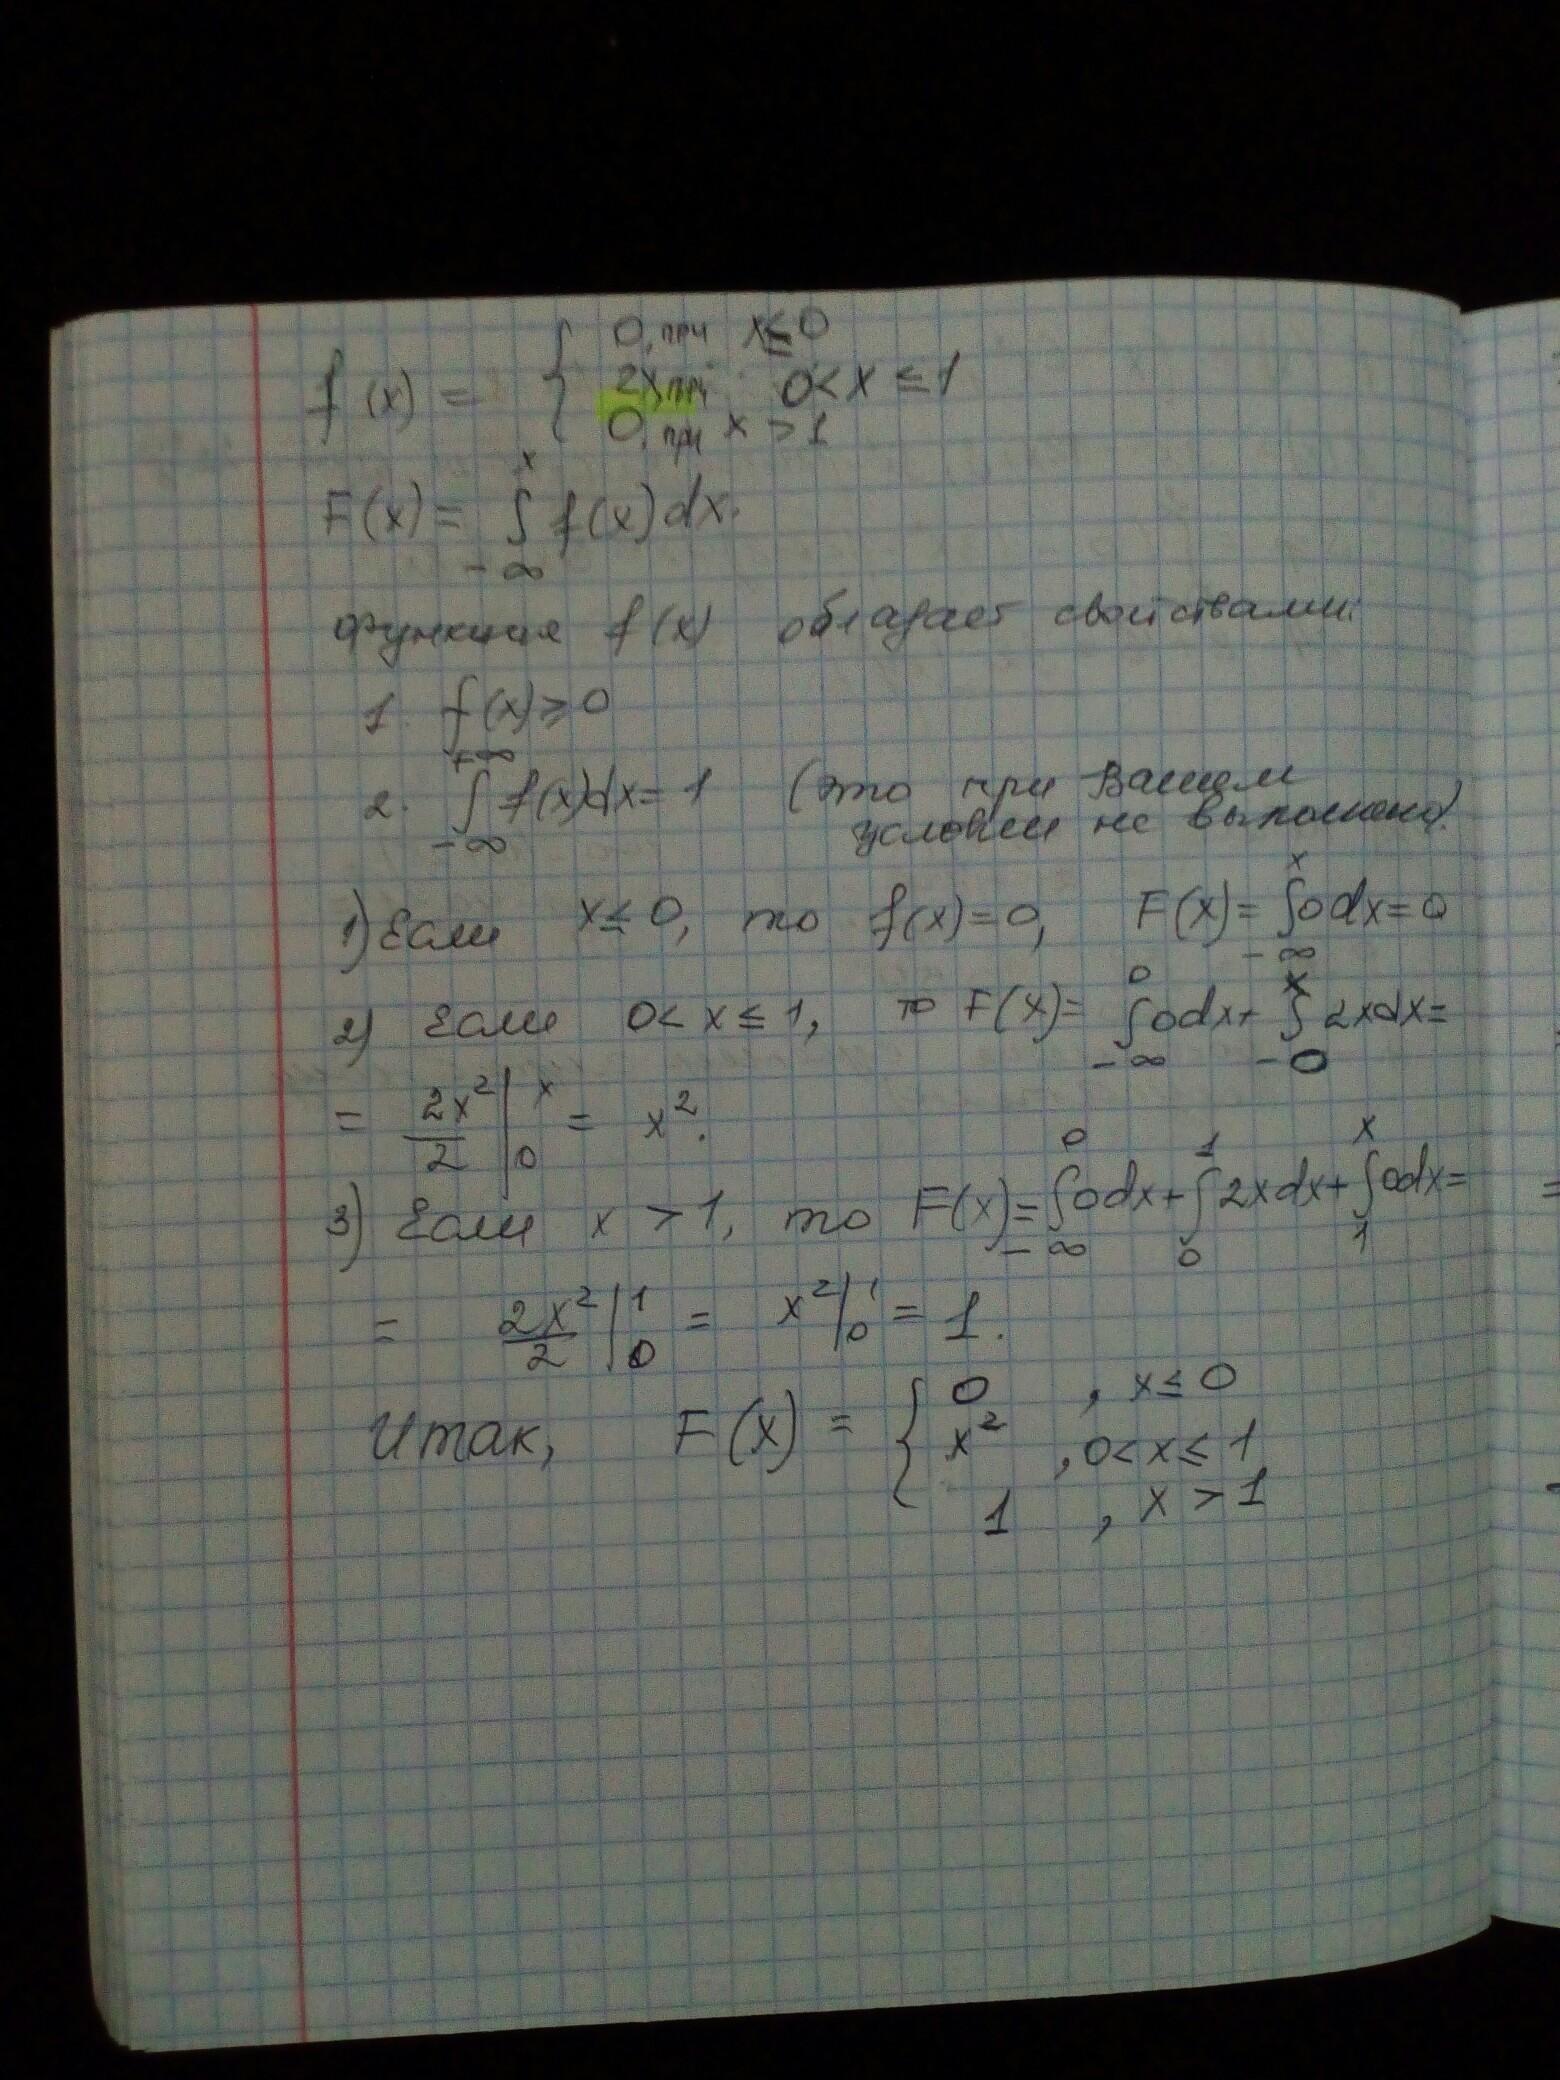 f(x) = { 0, при x ≤ 0
2x, при 0 < x ≤ 1
0, при x > 1
F(x) = ∫_{-∞}^{x} f(x)dx.
Функция f(x) обладает свойствами:
1. f(x) ≥ 0
2. ∫_{-∞}^{+∞} f(x)dx = 1 (это при Вашем
условии не выполнено).
1) Если x ≤ 0, то f(x) = 0, F(x) = ∫_{-∞}^{x} 0dx = 0
2) Если 0 < x ≤ 1, то F(x) = ∫_{-∞}^{0} 0dx + ∫_{-0}^{x} 2xdx =
= 2x²/2 |_0^x = x².
3) Если x > 1, то F(x) = ∫_{-∞}^{0} 0dx + ∫_0^1 2xdx + ∫_1^x 0dx =
= 2x²/2 |_0^1 = x² |_0^1 = 1.
Итак, F(x) = { 0, x ≤ 0
x², 0 < x ≤ 1
1, x > 1